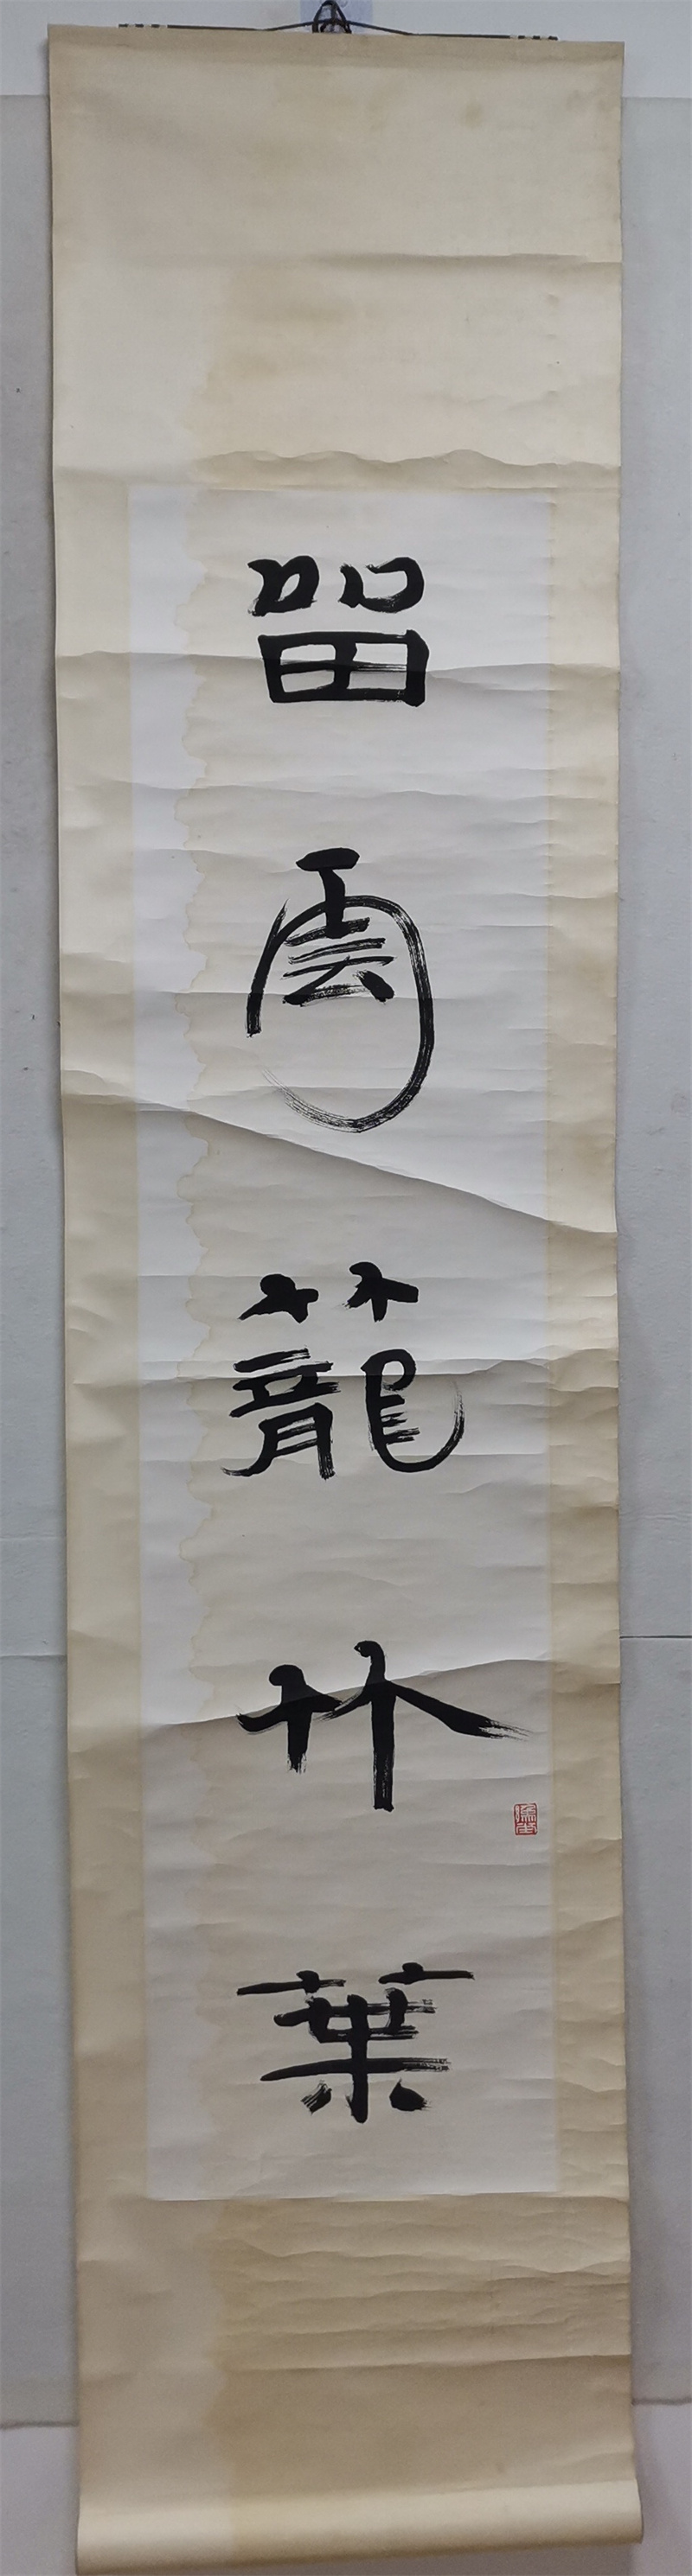 留雲籠竹葉